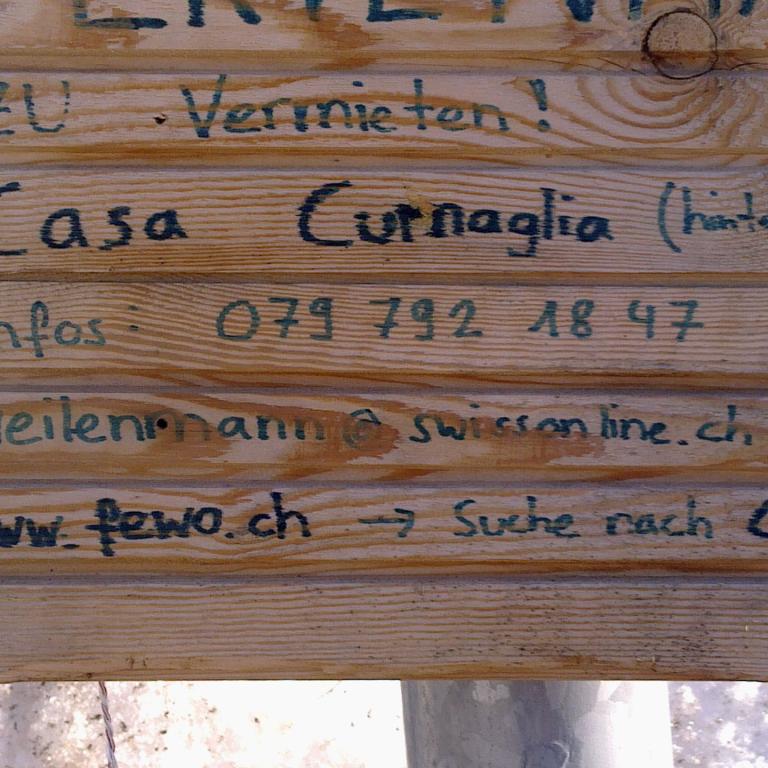 ZU Vermieten!
Casa Curnaglia (hinte
nfos: 079 792 18 47
eilenmann@swissonline.ch
ww.fewo.ch → Suche nach C